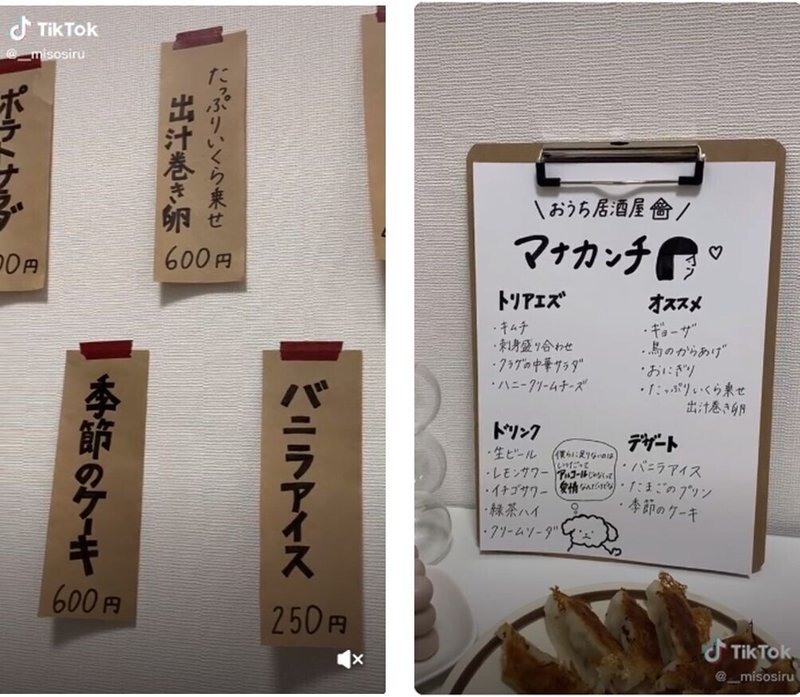 TikTok
@__misosiru
ポテトサラダ
00円
たっぷりいくら乗せ
出汁巻き卵
600円
季節のケーキ
600円
バニラアイス
250円
\おうち居酒屋/
マナカンチ
トリアエズ
・キムチ
・刺身盛り合わせ
・クラゲの中華サラダ
・ハニークリームチーズ
オススメ
・ギョーザ
・鳥のからあげ
・おにぎり
・たっぷりいくら乗せ
出汁巻き卵
ドリンク
・生ビール
・レモンサワー
・イチゴサワー
・緑茶ハイ
・クリームソーダ
僕らに足りないのは
いつだって
アルコールじゃなくって
愛情なんだけどな
デザート
・バニラアイス
・たまごのプリン
・季節のケーキ
TikTok
@__misosiru